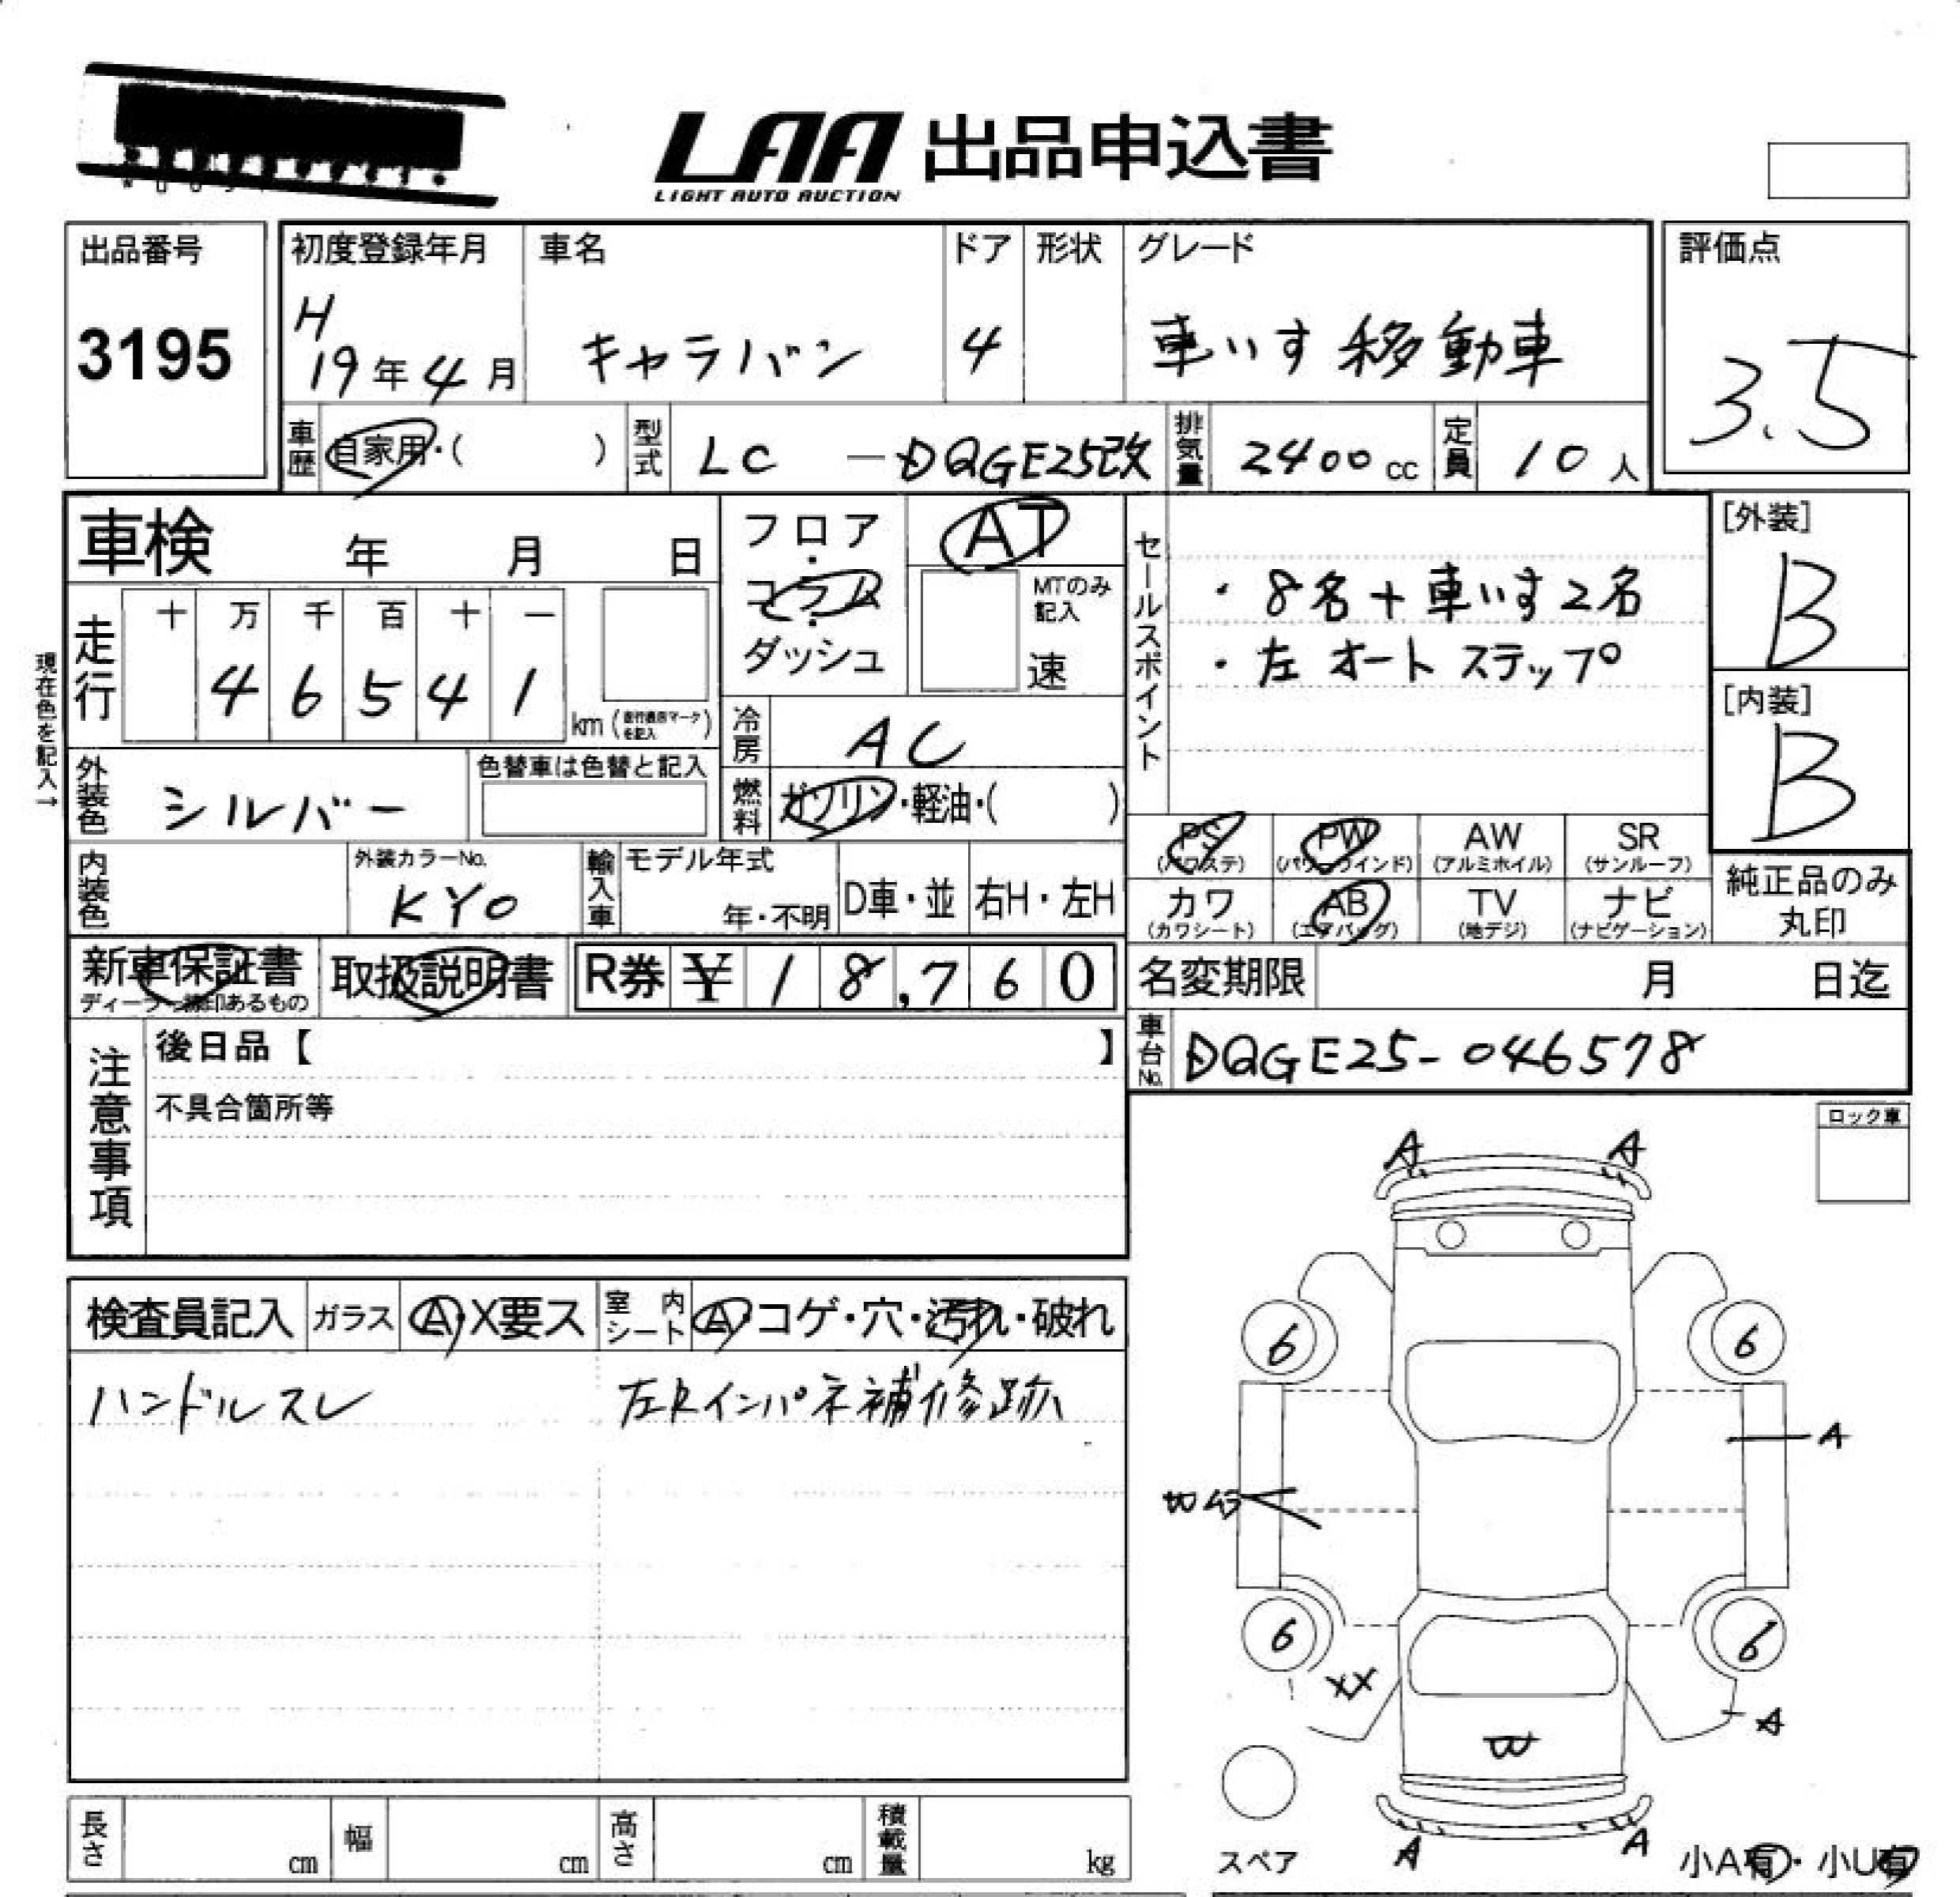 LAA 出品申込書
LIGHT AUTO AUCTION
出品番号 初度登録年月 車名 ドア 形状 グレード 評価点
3195 H 19年4月 キャラバン 4 車いす移動車 3.5
車歴 自家用・( ) 型式 LC -DQGE25改 排気量 2400cc 定員 10人
車検 年 月 日
フロア・コラム・ダッシュ
AT
MTのみ記入
速
セールスポイント
・8名+車いす2名
・左オートステップ
[外装]
B
[内装]
B
現在色を記入→
走行 十 万 千 百 十 一
4 6 5 4 1 km (走行表示マークを記入)
冷房 AC
外装色 シルバー 色替車は色替と記入
燃料 ガソリン・軽油・( )
PS (パワステ) PW (パワーウインド) AW (アルミホイル) SR (サンルーフ)
カワ (カワシート) AB (エアバッグ) TV (地デジ) ナビ (ナビゲーション)
純正品のみ
丸印
内装色 外装カラーNo. KY0 輸入車 モデル年式 年・不明 D車・並 右H・左H
新車保証書 取扱説明書 R券 ¥18,760 名変期限 月 日迄
車台No. DQGE25-046578
注意事項
後日品【 】
不具合箇所等
ロック車
検査員記入 ガラス A・X要ス 室内シート A・コゲ・穴・汚れ・破れ
ハンドルスレ 左Rインパネ補修跡
A A
6 6
A
6 6
XX
A
W
A A
スペア
小A有・小U有
長さ cm 幅 cm 高さ cm 積載量 kg